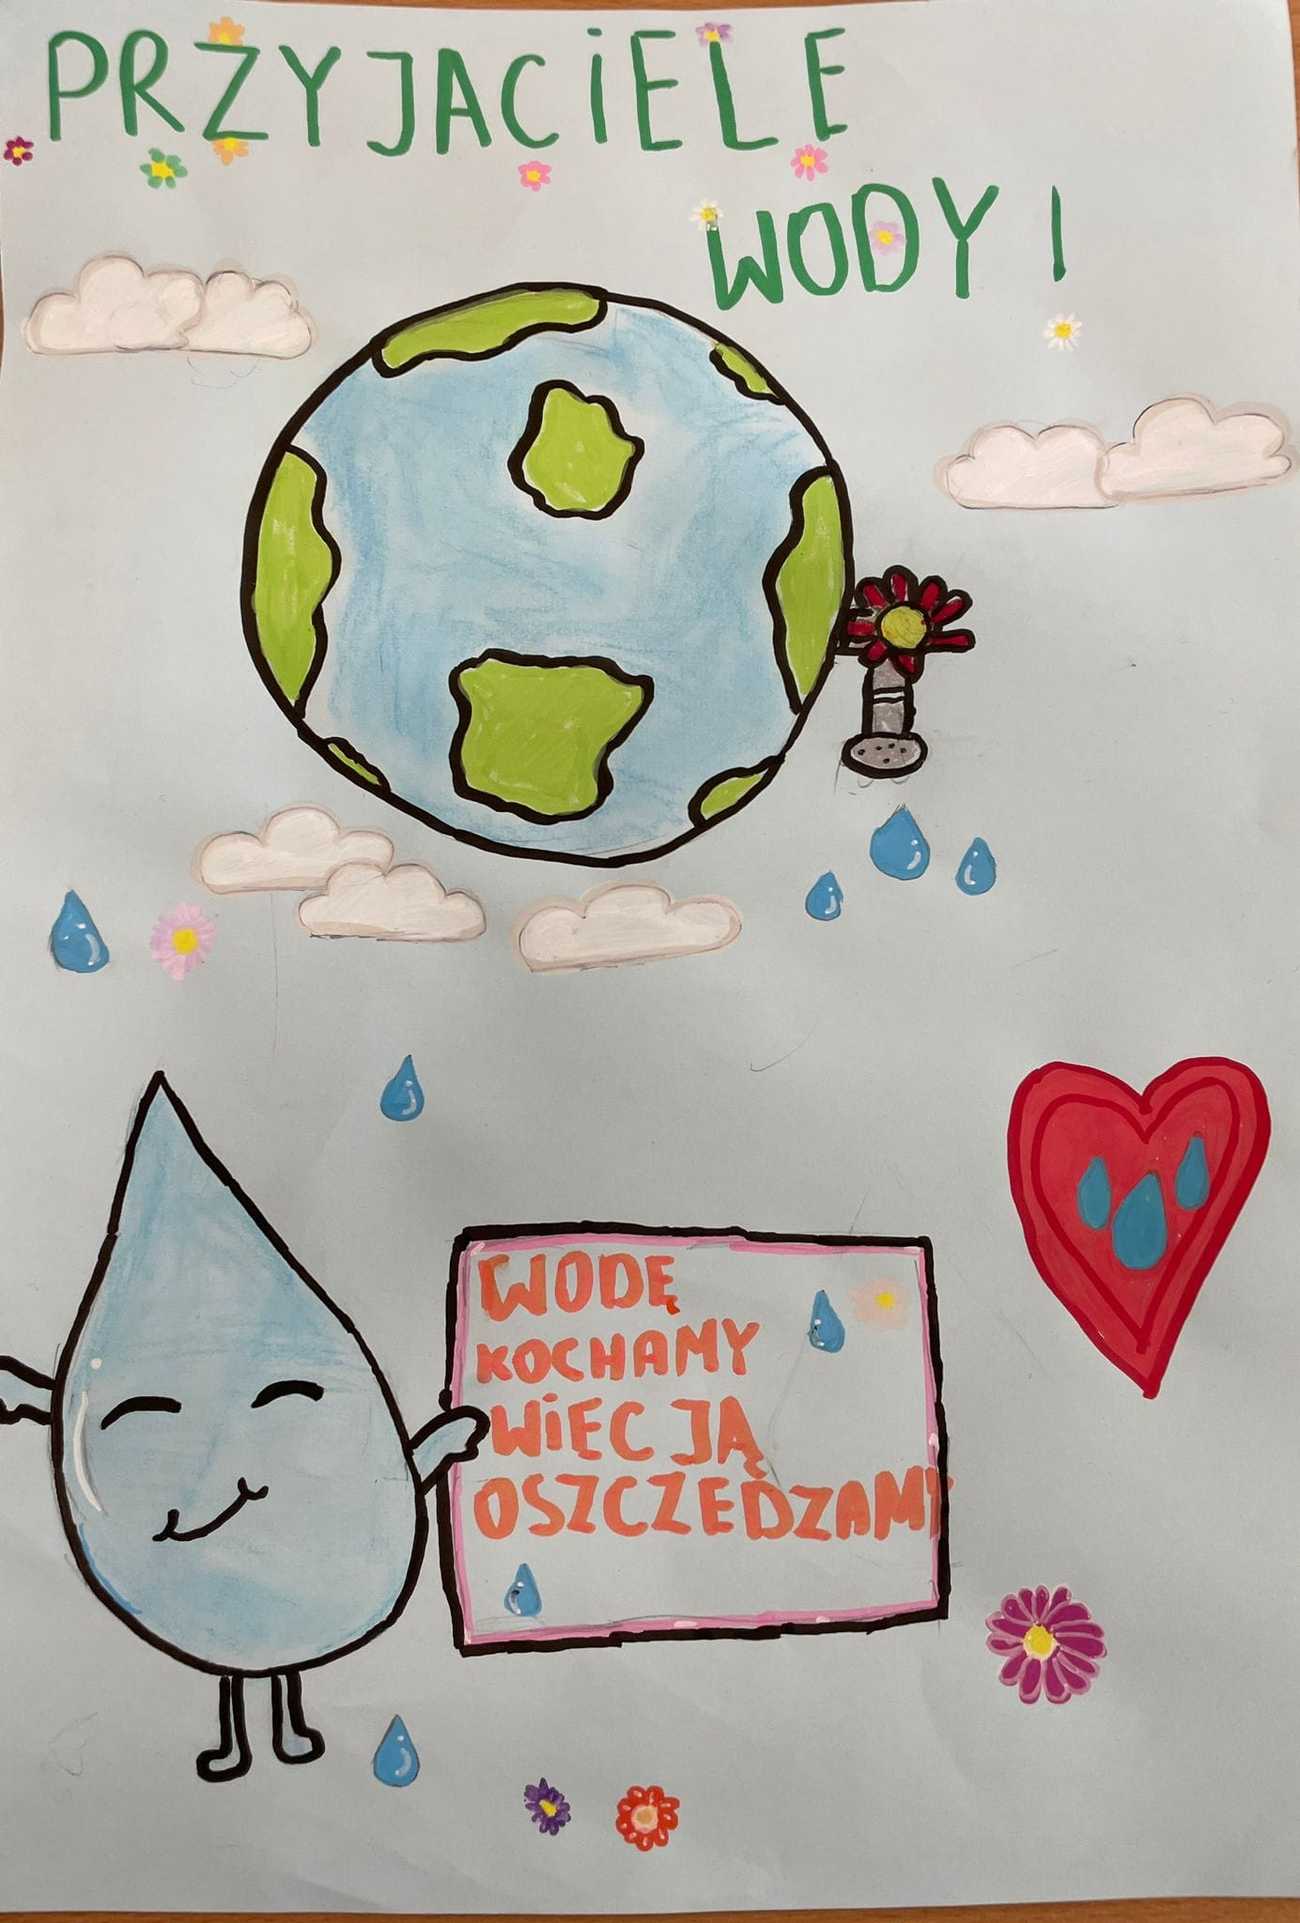 PRZYJACIELE
WODY!
WODĘ
KOCHAMY
WIEC JĄ
OSZCZEDZAMY